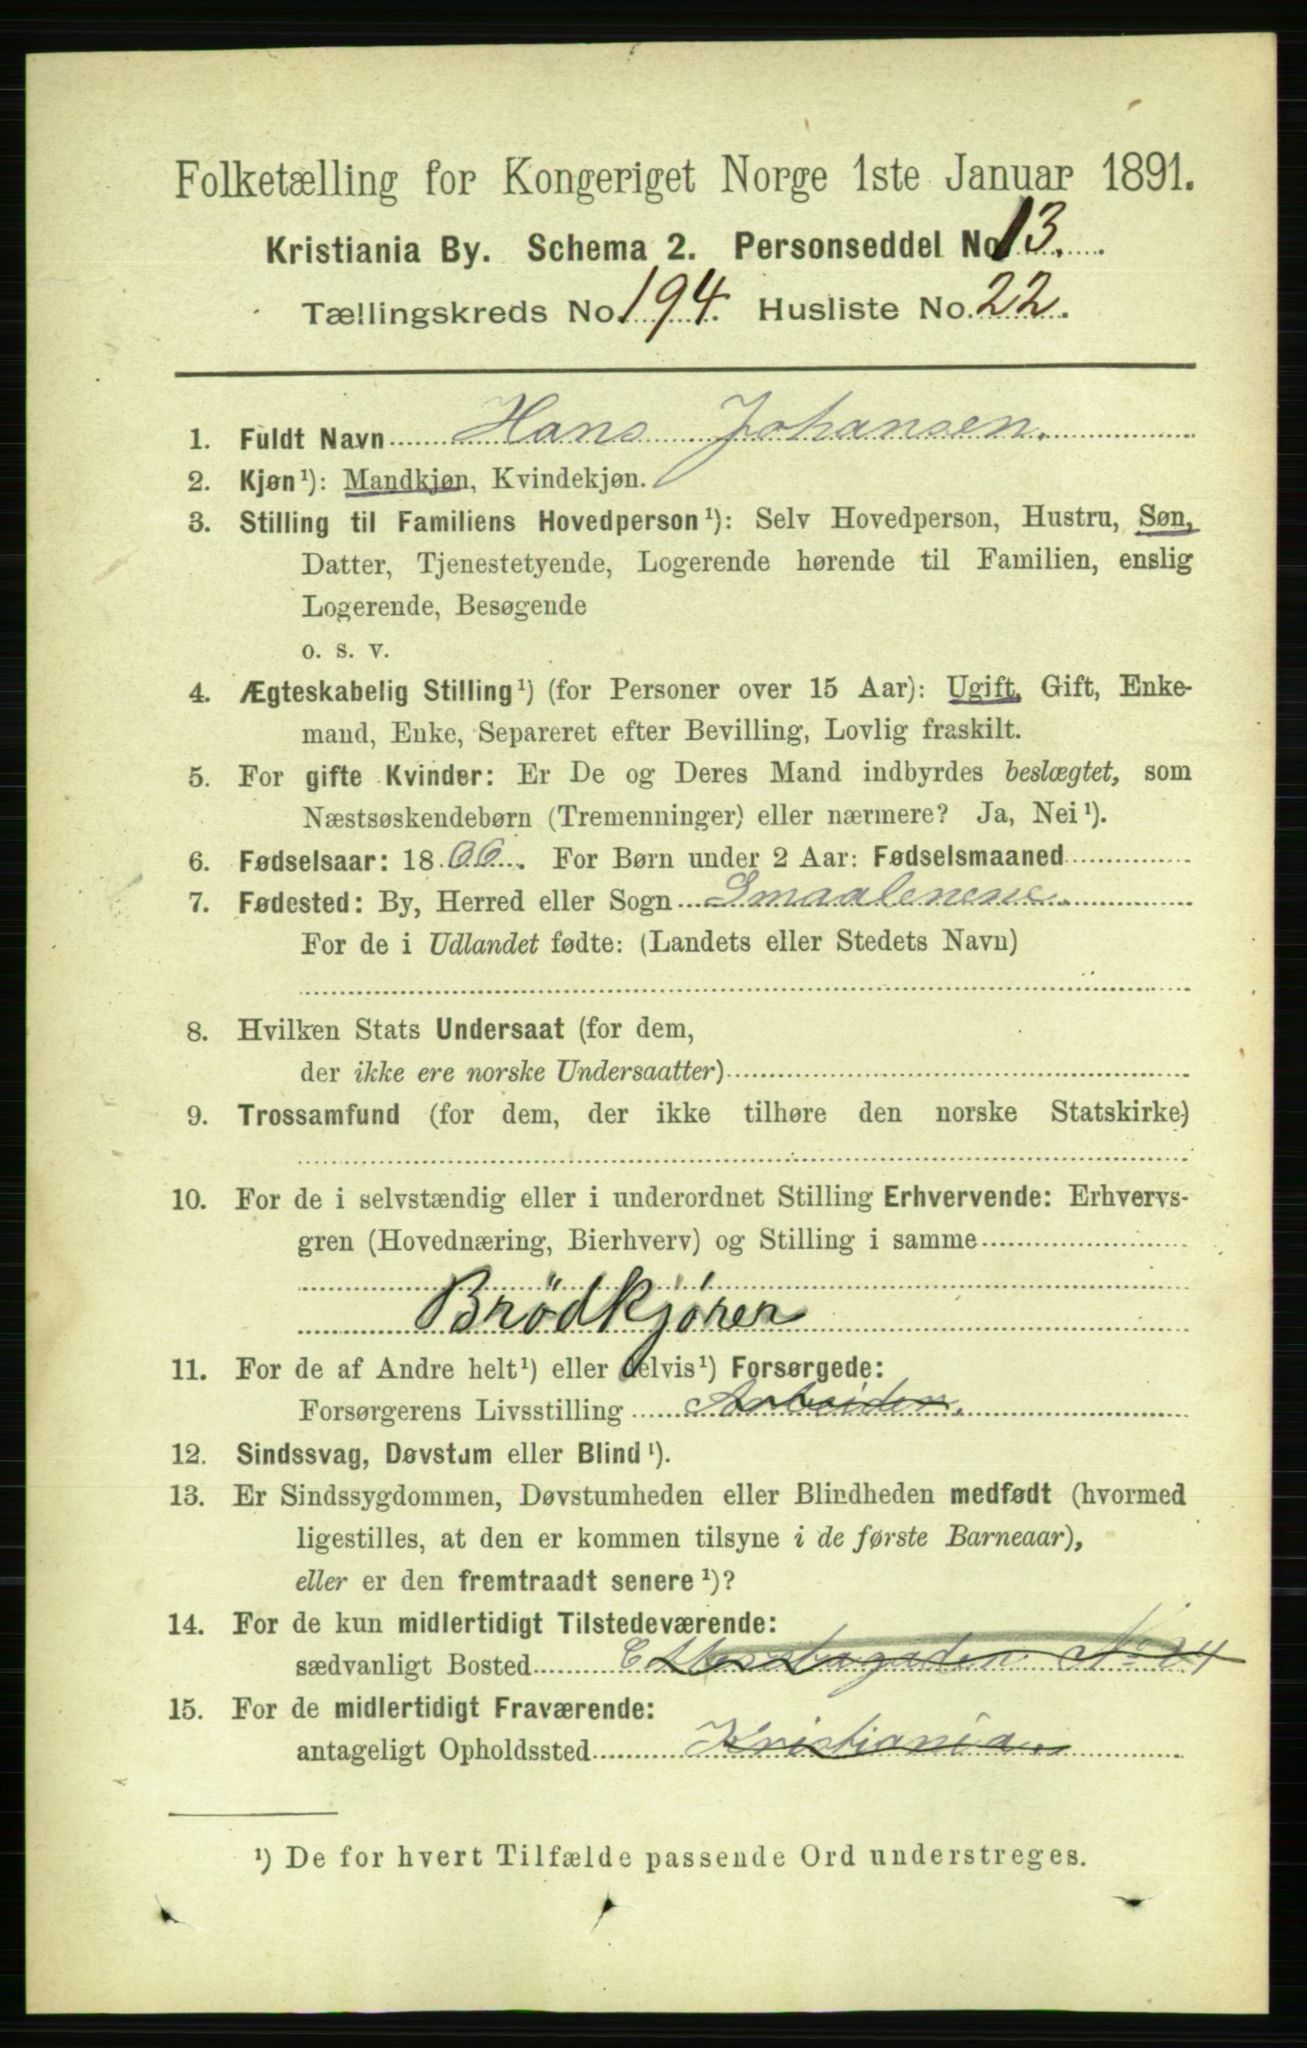 Folketælling for Kongeriget Norge 1ste Januar 1891.
Kristiania By. Schema 2. Personseddel No 13.
Tællingskreds No. 194. Husliste No. 22.
1. Fuldt Navn Hans Johansen.
2. Kjøn¹): Mandkjøn, Kvindekjøn.
3. Stilling til Familiens Hovedperson¹): Selv Hovedperson, Hustru, Søn,
Datter, Tjenestetyende, Logerende hørende til Familien, enslig
Logerende, Besøgende
o. s. v.
4. Ægteskabelig Stilling¹) (for Personer over 15 Aar): Ugift, Gift, Enke-
mand, Enke, Separeret efter Bevilling, Lovlig fraskilt.
5. For gifte Kvinder: Er De og Deres Mand indbyrdes beslægtet, som
Næstsøskendebørn (Tremenninger) eller nærmere? Ja, Nei¹).
6. Fødselsaar: 1866. For Børn under 2 Aar: Fødselsmaaned
7. Fødested: By, Herred eller Sogn Smaalenene.
For de i Udlandet fødte: (Landets eller Stedets Navn)
8. Hvilken Stats Undersaat (for dem,
der ikke ere norske Undersaatter)
9. Trossamfund (for dem, der ikke tilhøre den norske Statskirke)
10. For de i selvstændig eller i underordnet Stilling Erhvervende: Erhvervs-
gren (Hovednæring, Bierhverv) og Stilling i samme
Brödkjörer
11. For de af Andre helt¹) eller delvis¹) Forsørgede:
Forsørgerens Livsstilling Arbeider.
12. Sindssvag, Døvstum eller Blind¹).
13. Er Sindssygdommen, Døvstumheden eller Blindheden medfødt (hvormed
ligestilles, at den er kommen tilsyne i de første Barneaar),
eller er den fremtraadt senere¹)?
14. For de kun midlertidigt Tilstedeværende:
sædvanligt Bosted No 24
15. For de midlertidigt Fraværende:
antageligt Opholdssted Kristiania.
¹) De for hvert Tilfælde passende Ord understreges.